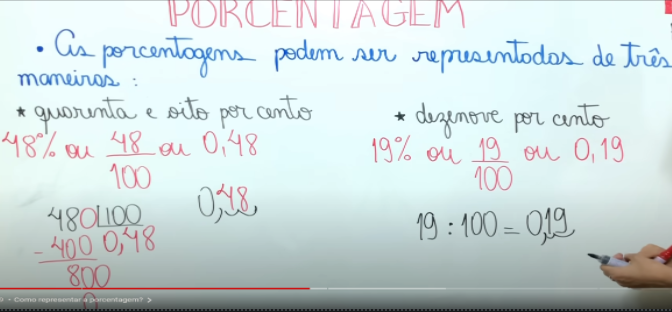 PORCENTAGEM
• As porcentagens podem ser representadas de três
maneiras:
* quarenta e oito por cento
48% ou 48/100 ou 0,48
480 100
- 400 0,48
800
0
0,48
* dezenove por cento
19% ou 19/100 ou 0,19
19 : 100 = 0,19
Como representar a porcentagem? >